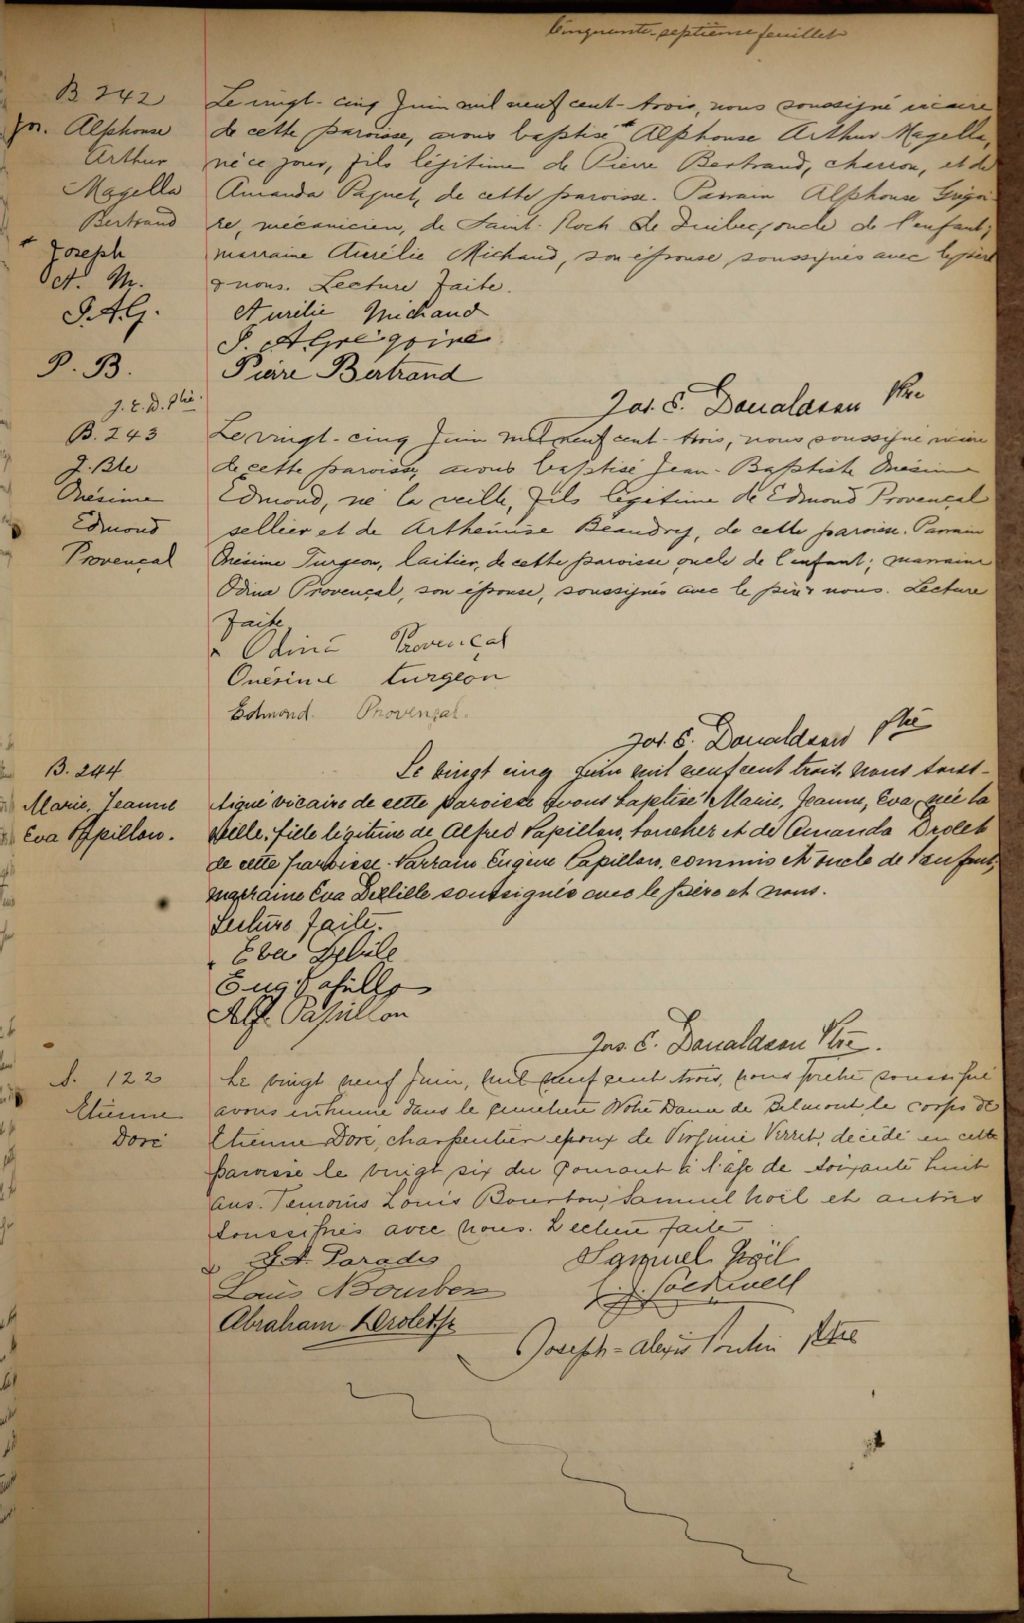 Cinquante-septième feuillet
B 242
Jos. Alphonse
Arthur
Magella
Bertrand
* Joseph
A. M.
J. A. G.
P. B.
J. E. D. Ptre.
Le vingt-cinq Juin mil neuf cent-trois, nous soussigné vicaire
de cette paroisse, avons baptisé * Alphonse Arthur Magella,
né ce jour, fils légitime de Pierre Bertrand, charron, et de
Amanda Paquet, de cette paroisse. Parrain Alphonse Grégoi-
re, mécanicien, de Saint-Roch de Québec, oncle de l'enfant;
marraine Aurélie Michaud, son épouse, soussignés avec le père
& nous. Lecture faite.
Aurélie Michaud
J. A. Grégoire
Pierre Bertrand
Jos. E. Donaldson Ptre
B. 243
J. Bte
Onésime
Edmond
Provençal
Le vingt-cinq Juin mil neuf cent-trois, nous soussigné vicaire
de cette paroisse, avons baptisé Jean-Baptiste Onésime
Edmond, né la veille, fils légitime de Edmond Provençal
sellier et de Arthémise Beaudry, de cette paroisse. Parrain
Onésime Turgeon, laitier, de cette paroisse, oncle de l'enfant; marraine
Odina Provençal, son épouse, soussignés avec le père & nous. Lecture
faite.
Odina Provençal
Onésime turgeon
Edmond Provençal.
Jos. E. Donaldson Ptre
B. 244
Marie, Jeanne
Eva Papillon.
Le vingt cinq Juin mil neuf cent trois, nous sous-
signé vicaire de cette paroisse avons baptisé Marie, Jeanne, Eva, née la
veille, fille légitime de Alfred Papillon, boucher et de Amanda Drolet
de cette paroisse. Parrain Eugène Papillon, commis et oncle de l'enfant;
marraine Eva Delisle soussignés avec le père et nous.
Lecture faite.
Eva Delisle
Eug. Papillon
Alf. Papillon
Jos. E. Donaldson Ptre.
S. 122
Etienne
Doré
Le vingt neuf Juin, mil neuf cent trois, nous prêtre soussigné
avons inhumé dans le cimetière Notre Dame de Belmont, le corps de
Etienne Doré, charpentier époux de Virginie Verret, décédé en cette
paroisse le vingt six du courant à l'âge de soixante huit
ans. Témoins Louis Bourbon, Samuel Noël et autres
soussignés avec nous. Lecture faite
Paradis
Samuel Noël
Louis Bourbon
Abraham Drolet
Joseph-Alexis Poulin Ptre